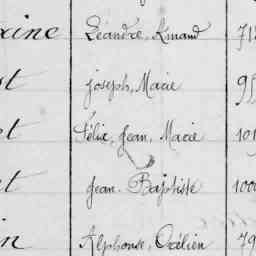 xine Léandre, Armand 71
st Joseph, Marie 95
et Félix, Jean, Marie 101
et Jean-Baptiste 100
in Alphonse, Océlien 79